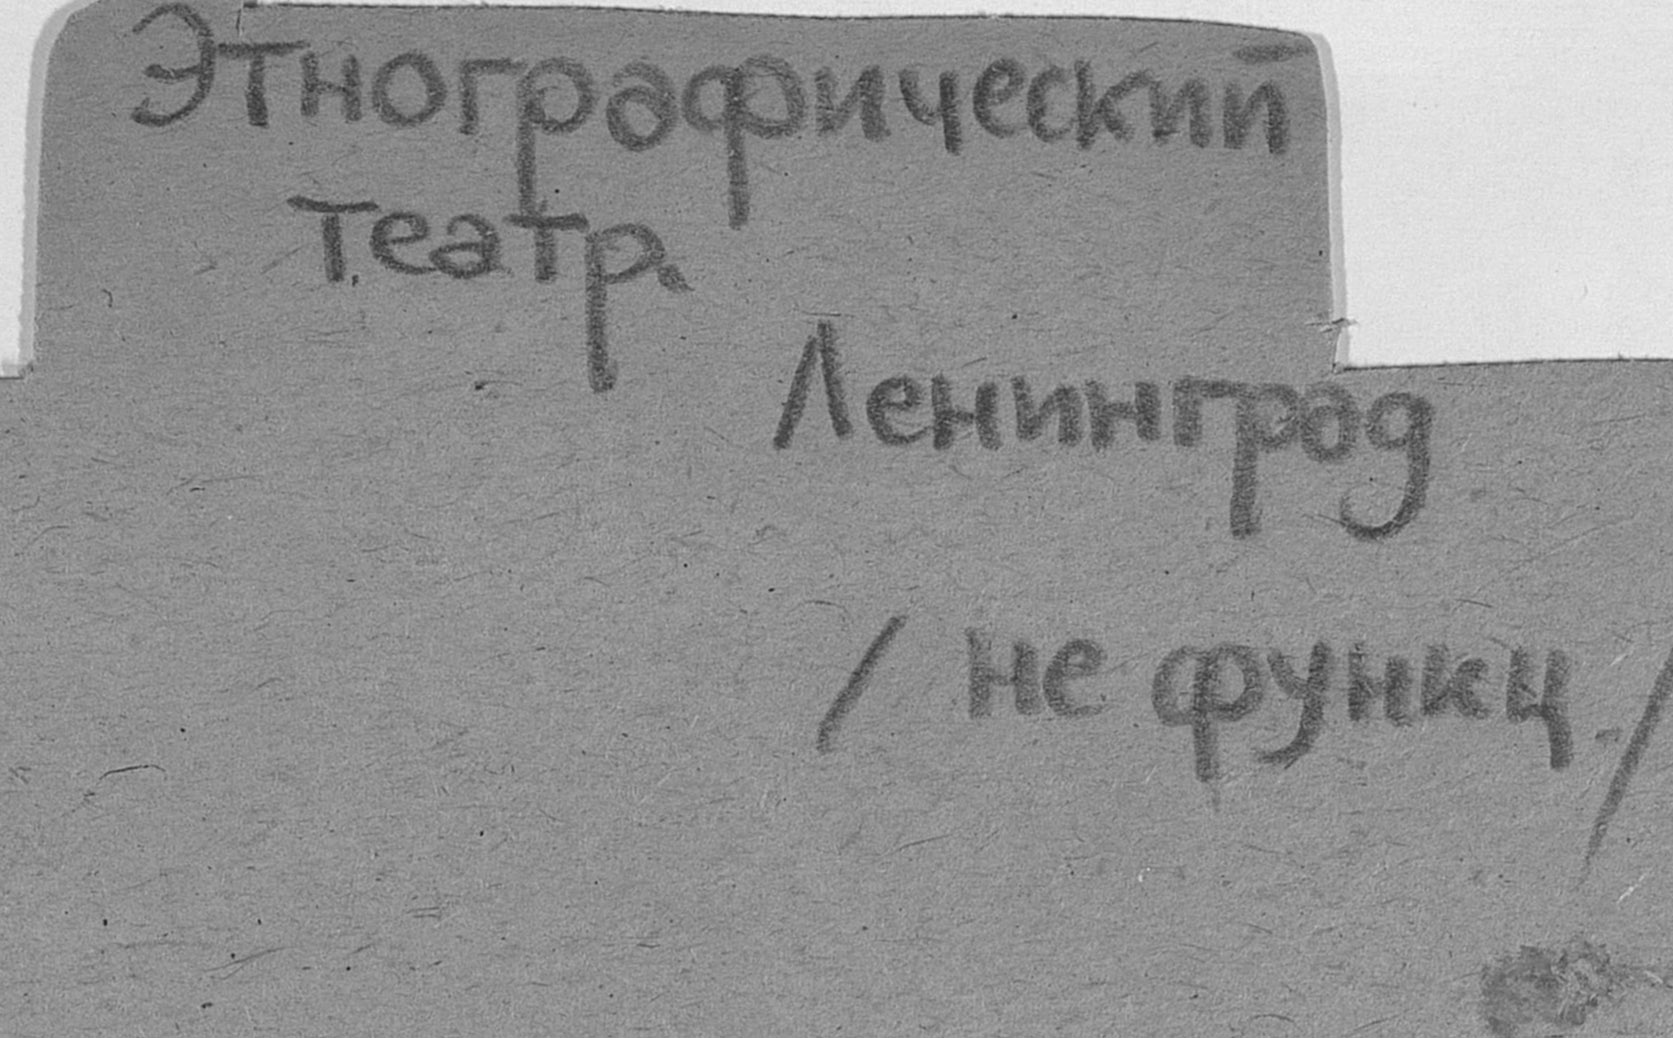 Этнографический
театр.
Ленинград
/ не функц./